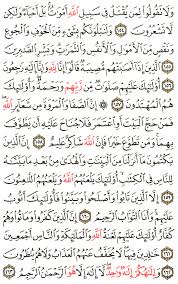 وَلَا تَقُولُوا۟ لِمَن يُقْتَلُ فِى سَبِيلِ ٱللَّهِ أَمْوَٰتٌۢ بَلْ أَحْيَآءٌ وَلَٰكِن
لَّا تَشْعُرُونَ ١٥٤ وَلَنَبْلُوَنَّكُم بِشَىْءٍ مِّنَ ٱلْخَوْفِ وَٱلْجُوعِ
وَنَقْصٍ مِّنَ ٱلْأَمْوَٰلِ وَٱلْأَنفُسِ وَٱلثَّمَرَٰتِ وَبَشِّرِ ٱلصَّٰبِرِينَ ١٥٥
ٱلَّذِينَ إِذَآ أَصَٰبَتْهُم مُّصِيبَةٌ قَالُوٓا۟ إِنَّا لِلَّهِ وَإِنَّآ إِلَيْهِ رَٰجِعُونَ ١٥٦
أُو۟لَٰٓئِكَ عَلَيْهِمْ صَلَوَٰتٌ مِّن رَّبِّهِمْ وَرَحْمَةٌ وَأُو۟لَٰٓئِكَ
هُمُ ٱلْمُهْتَدُونَ ١٥٧ إِنَّ ٱلصَّفَا وَٱلْمَرْوَةَ مِن شَعَآئِرِ ٱللَّهِ
فَمَنْ حَجَّ ٱلْبَيْتَ أَوِ ٱعْتَمَرَ فَلَا جُنَاحَ عَلَيْهِ أَن يَطَّوَّفَ
بِهِمَا وَمَن تَطَوَّعَ خَيْرًا فَإِنَّ ٱللَّهَ شَاكِرٌ عَلِيمٌ ١٥٨ إِنَّ ٱلَّذِينَ
يَكْتُمُونَ مَآ أَنزَلْنَا مِنَ ٱلْبَيِّنَٰتِ وَٱلْهُدَىٰ مِنۢ بَعْدِ مَا بَيَّنَّٰهُ
لِلنَّاسِ فِى ٱلْكِتَٰبِ أُو۟لَٰٓئِكَ يَلْعَنُهُمُ ٱللَّهُ وَيَلْعَنُهُمُ ٱللَّٰعِنُونَ
١٥٩ إِلَّا ٱلَّذِينَ تَابُوا۟ وَأَصْلَحُوا۟ وَبَيَّنُوا۟ فَأُو۟لَٰٓئِكَ أَتُوبُ عَلَيْهِمْ
وَأَنَا ٱلتَّوَّابُ ٱلرَّحِيمُ ١٦٠ إِنَّ ٱلَّذِينَ كَفَرُوا۟ وَمَاتُوا۟ وَهُمْ
كُفَّارٌ أُو۟لَٰٓئِكَ عَلَيْهِمْ لَعْنَةُ ٱللَّهِ وَٱلْمَلَٰٓئِكَةِ وَٱلنَّاسِ أَجْمَعِينَ
١٦١ خَٰلِدِينَ فِيهَا لَا يُخَفَّفُ عَنْهُمُ ٱلْعَذَابُ وَلَا هُمْ يُنظَرُونَ
١٦٢ وَإِلَٰهُكُمْ إِلَٰهٌ وَٰحِدٌ لَّآ إِلَٰهَ إِلَّا هُوَ ٱلرَّحْمَٰنُ ٱلرَّحِيمُ ١٦٣